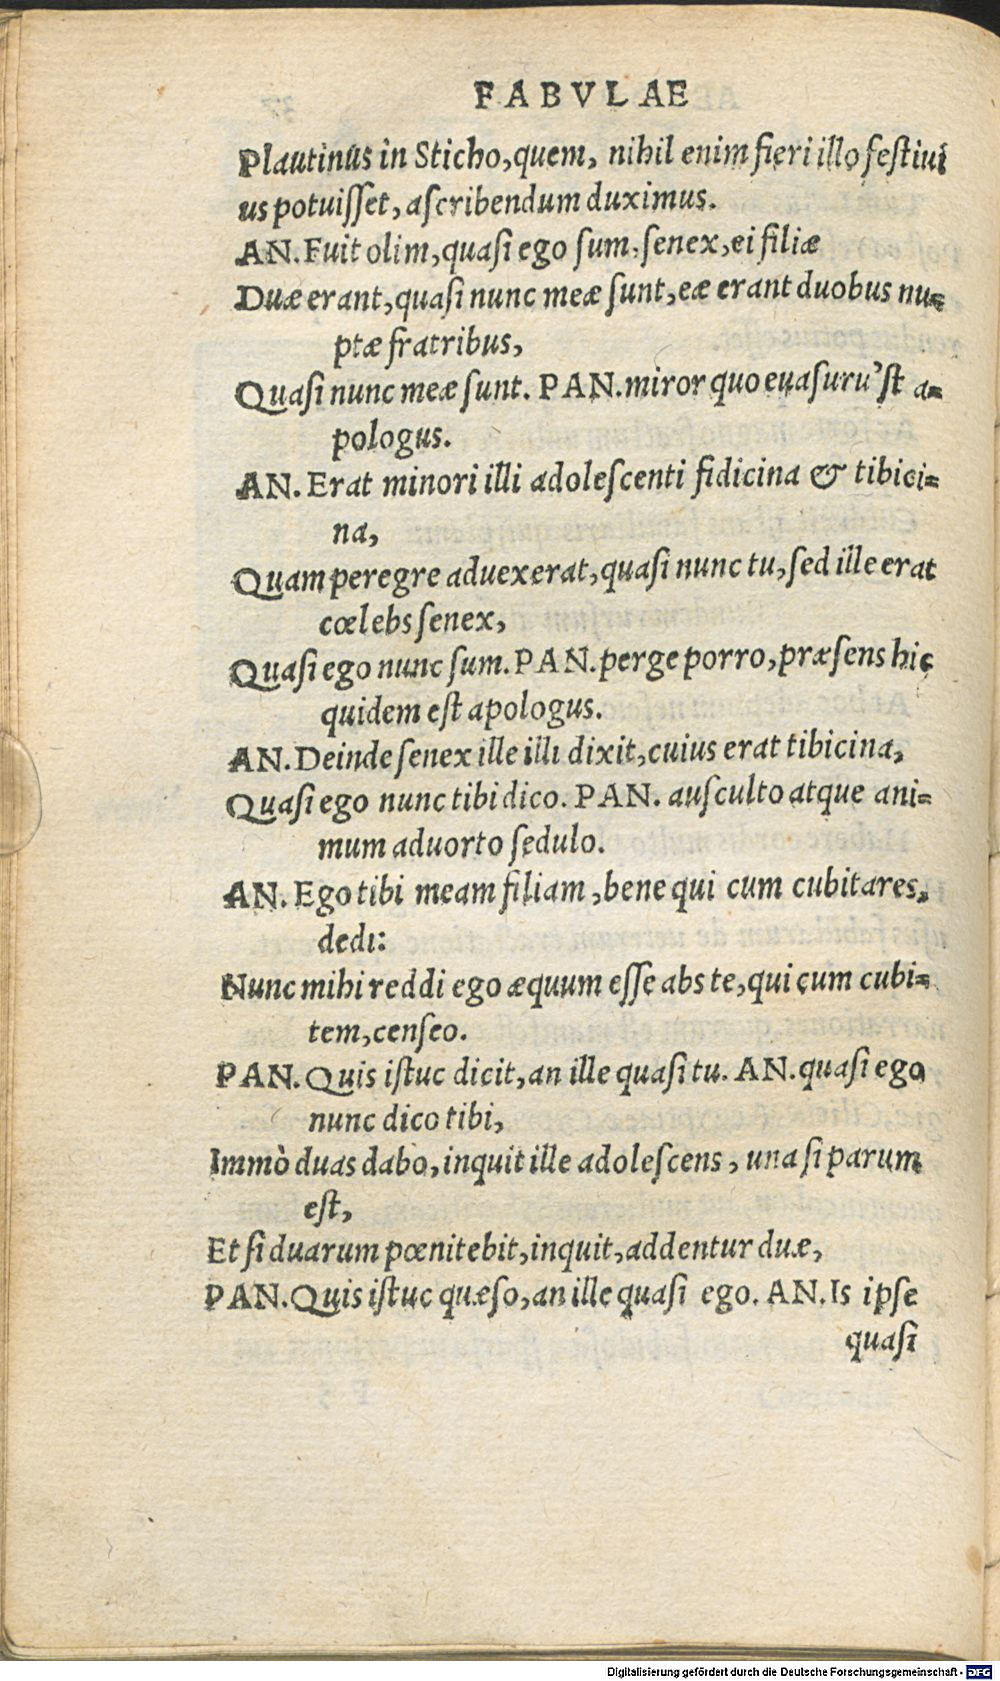 FABVLAE
Plautinus in Sticho, quem, nihil enim fieri illo festiui
us potuisset, ascribendum duximus.
AN. Fuit olim, quasi ego sum, senex, ei filiæ
Duæ erant, quasi nunc meæ sunt, eæ erant duobus nu-
ptæ fratribus,
Quasi nunc meæ sunt. PAN. miror quo euasuru'st a-
pologus.
AN. Erat minori illi adolescenti fidicina & tibici-
na,
Quam peregre aduexerat, quasi nunc tu, sed ille erat
cœlebs senex,
Quasi ego nunc sum. PAN. perge porro, præsens hic
quidem est apologus.
AN. Deinde senex ille illi dixit, cuius erat tibicina,
Quasi ego nunc tibi dico. PAN. ausculto atque ani-
mum aduorto sedulo.
AN. Ego tibi meam filiam, bene qui cum cubitares,
dedi:
Nunc mihi reddi ego æquum esse abs te, qui cum cubi-
tem, censeo.
PAN. Quis istuc dicit, an ille quasi tu. AN. quasi ego
nunc dico tibi,
Immò duas dabo, inquit ille adolescens, una si parum
est,
Et si duarum pœnitebit, inquit, addentur duæ,
PAN. Quis istuc quæso, an ille quasi ego. AN. Is ipse
quasi
Digitalisierung gefördert durch die Deutsche Forschungsgemeinschaft - DFG